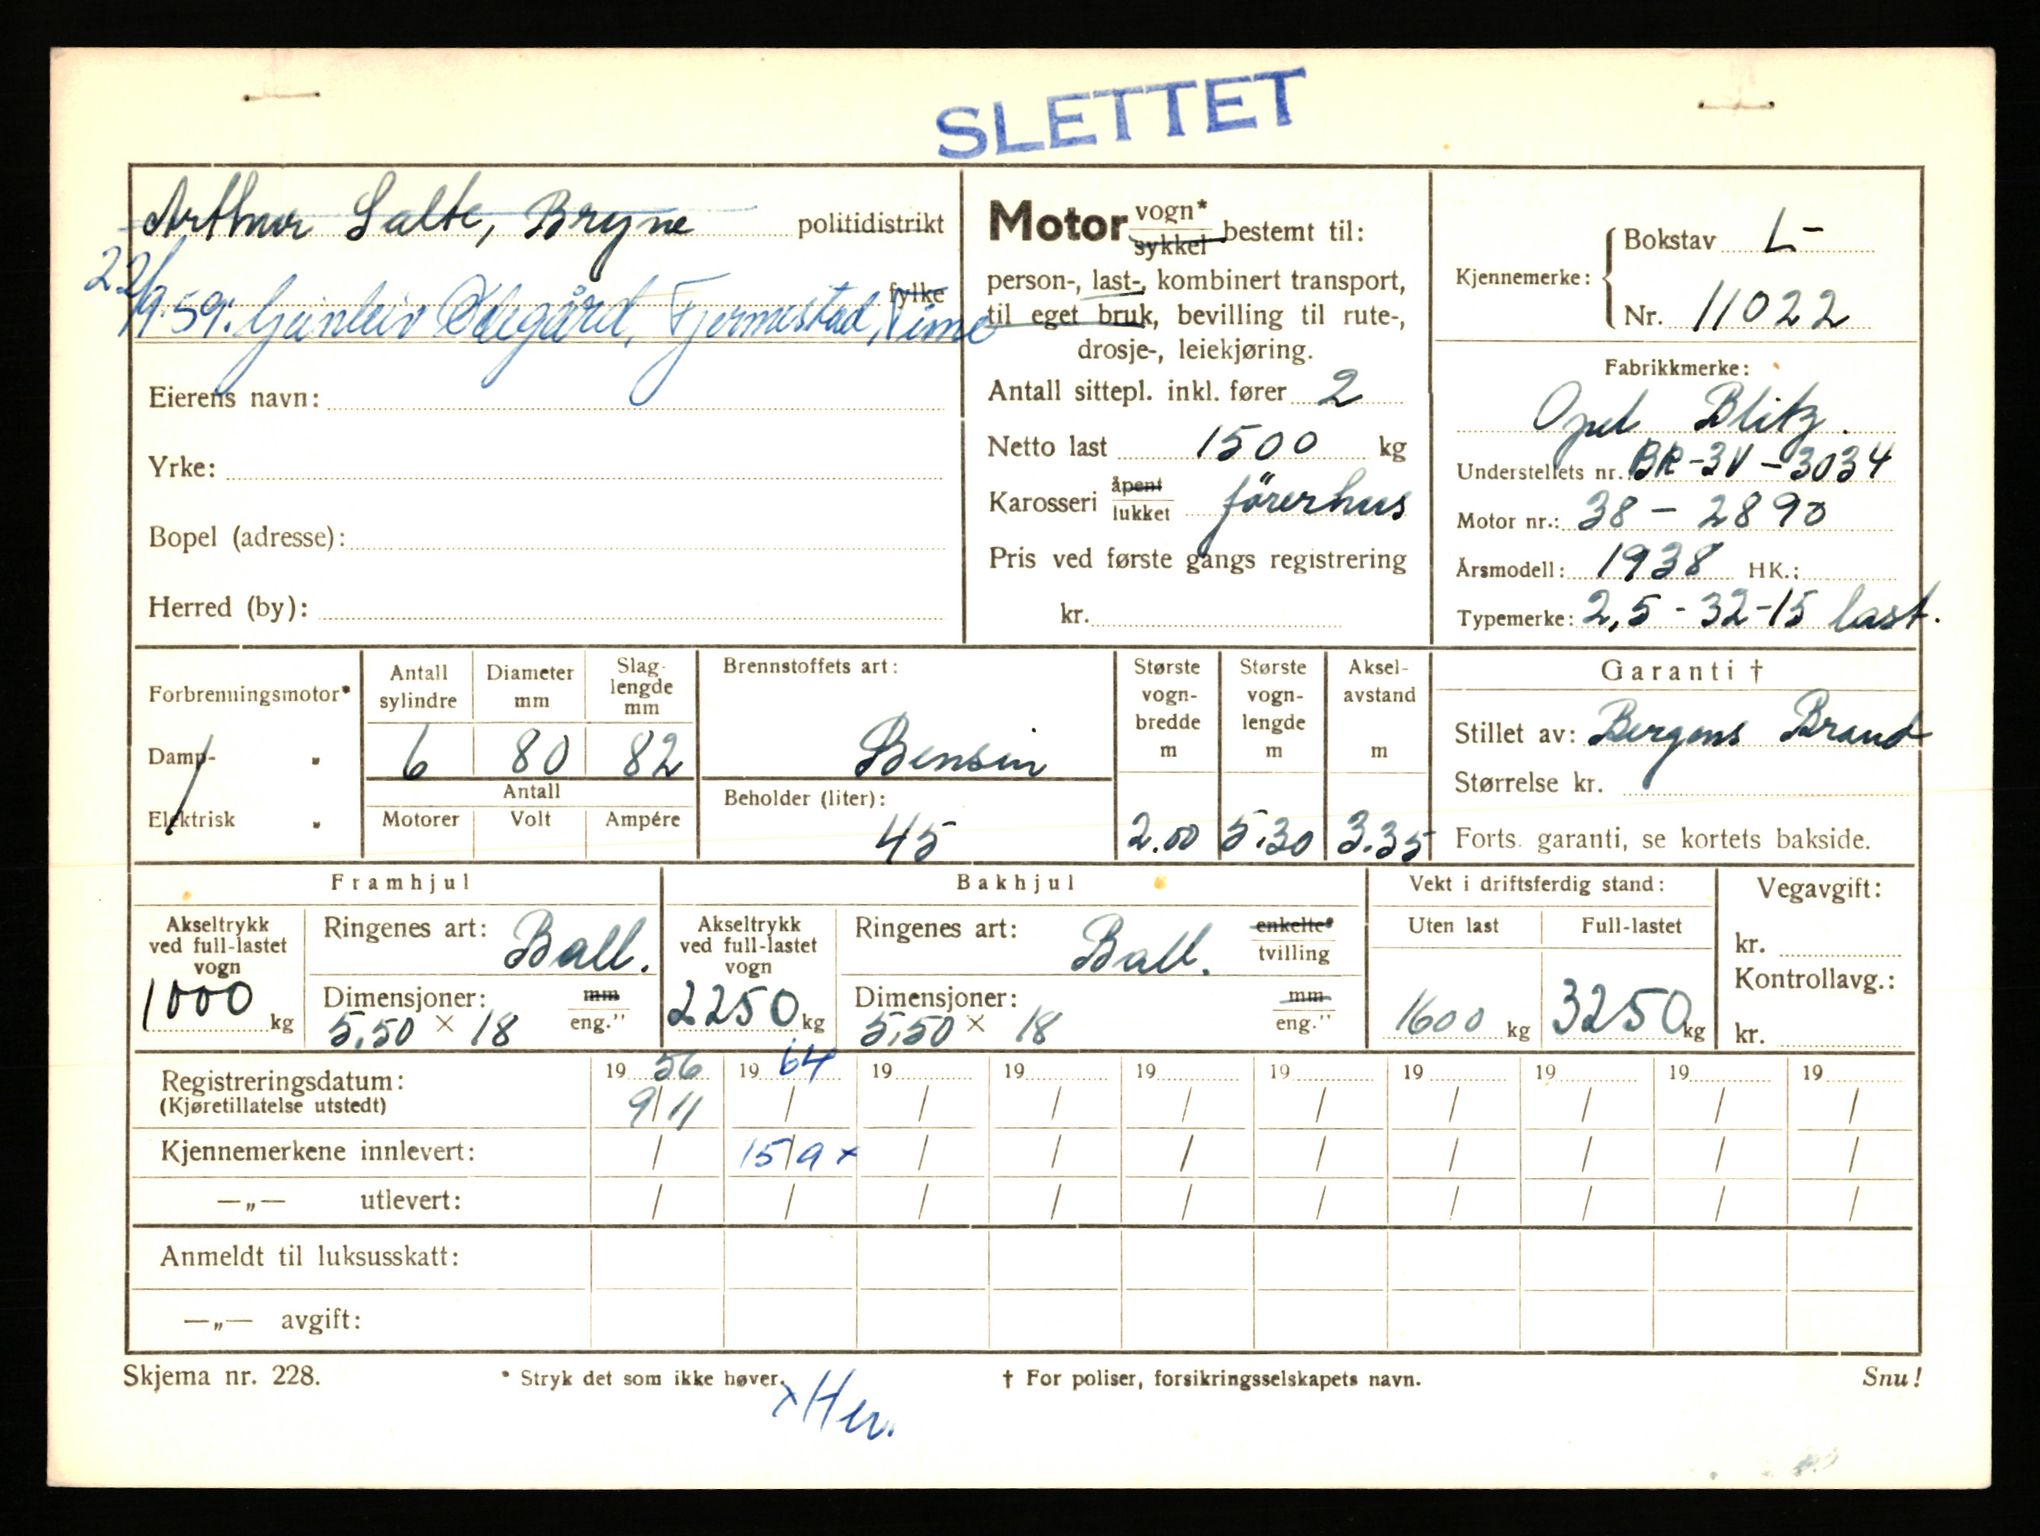 SLETTET
Arthur Salte, Bryne politidistrikt
22/9.59. Gunleiv Ødegård, Fjermestad, Time
fylke
Eierens navn:
Yrke:
Bopel (adresse):
Herred (by):
Motor vogn* sykkel bestemt til:
person-, last-, kombinert transport,
til eget bruk, bevilling til rute-,
drosje-, leiekjøring.
Antall sittepl. inkl. fører 2
Netto last 1500 kg
Karosseri åpent lukket førerhus
Pris ved første gangs registrering
kr.
Kjennemerke: Bokstav L-
Nr. 11022
Fabrikkmerke:
Opel Blitz.
Understellets nr. BR-3V-3034
Motor nr.: 38-2890
Årsmodell: 1938 HK.:
Typemerke: 2,5-32-15 last.
Forbrenningsmotor*
Damp- „
Elektrisk „
Antall sylindre Diameter mm Slaglengde mm
6 80 82
Antall
Motorer Volt Ampére
Brennstoffets art:
Bensin
Beholder (liter):
45
Største vogn-bredde m Største vogn-lengde m Aksel-avstand m
2.00 5.30 3.35
Garanti †
Stillet av: Bergens Brand
Størrelse kr.
Forts. garanti, se kortets bakside.
Framhjul
Akseltrykk ved full-lastet vogn
1000 kg
Ringenes art: Ball.
Dimensjoner: mm
5,50 × 18 eng."
Bakhjul
Akseltrykk ved full-lastet vogn
2250 kg
Ringenes art: Ball. enkelte* tvilling
Dimensjoner: mm
5,50 × 18 eng."
Vekt i driftsferdig stand:
Uten last Full-lastet
1600 kg 3250 kg
Vegavgift:
kr.
Kontrollavg.:
kr.
Registreringsdatum: 19 56 19 64 19 19 19 19 19 19 19 19
(Kjøretillatelse utstedt) 9/11 / / / / / / / / /
Kjennemerkene innlevert: / 15/9 x / / / / / / / /
—„— utlevert: / / / / / / / / / /
Anmeldt til luksusskatt:
—„— avgift:
Skjema nr. 228. * Stryk det som ikke høver. † For poliser, forsikringsselskapets navn. Snu!